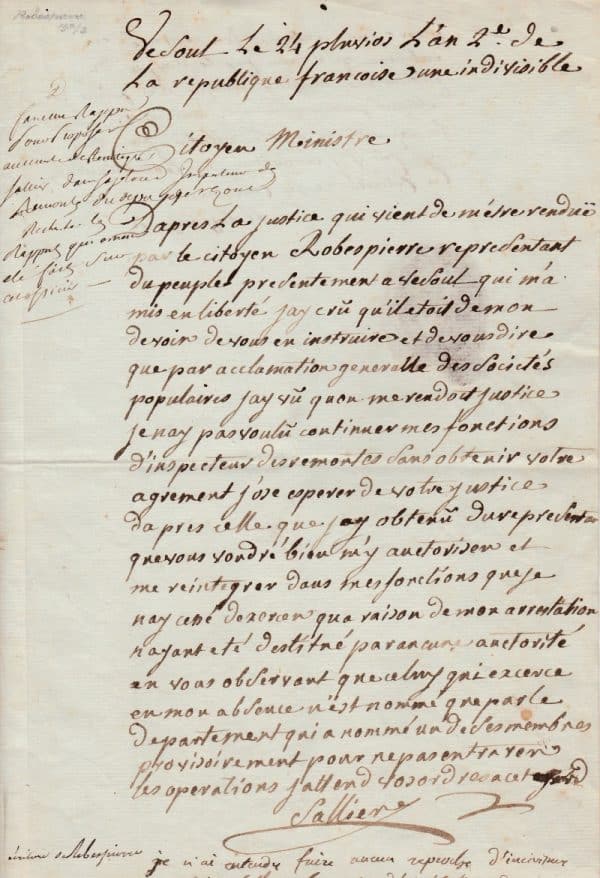 Vesoul Le 24 pluvios L'an 2e. de
La republique francoise, une indivisible
Citoyen Ministre
Dapres La justice qui vient de m'etre renduë
par le citoyen Robespierre representant
du peuple presentement a vesoul qui m'a
mis en liberté jay crû qu'il etoit de mon
devoir de vous en instruire et de vous dire
que par acclamation generalle des Societés
populaires jay vû quon me rendoit justice
je nay pas voulû continuer mes fonctions
d'inspecteur des remontes sans obtenir votre
agrement j'ose esperer de votre justice
dapres celle que jay obtenû du representan
que vous voudré bien m'y auctoriser et
me reintegrer dans mes fonctions que je
nay cené dexercer qua raison de mon arrestation
n'ayant eté destitué par aucune auctorité
en vous observant que celuy qui excerce
en mon absence n'est nommé que par le
departement qui a nommé un de ses membres
provisoirement pour ne pas entraver
les operations j'attend vos ordres a cet
Sallier
je n'ai entendu faire aucun reproche d'incivisme